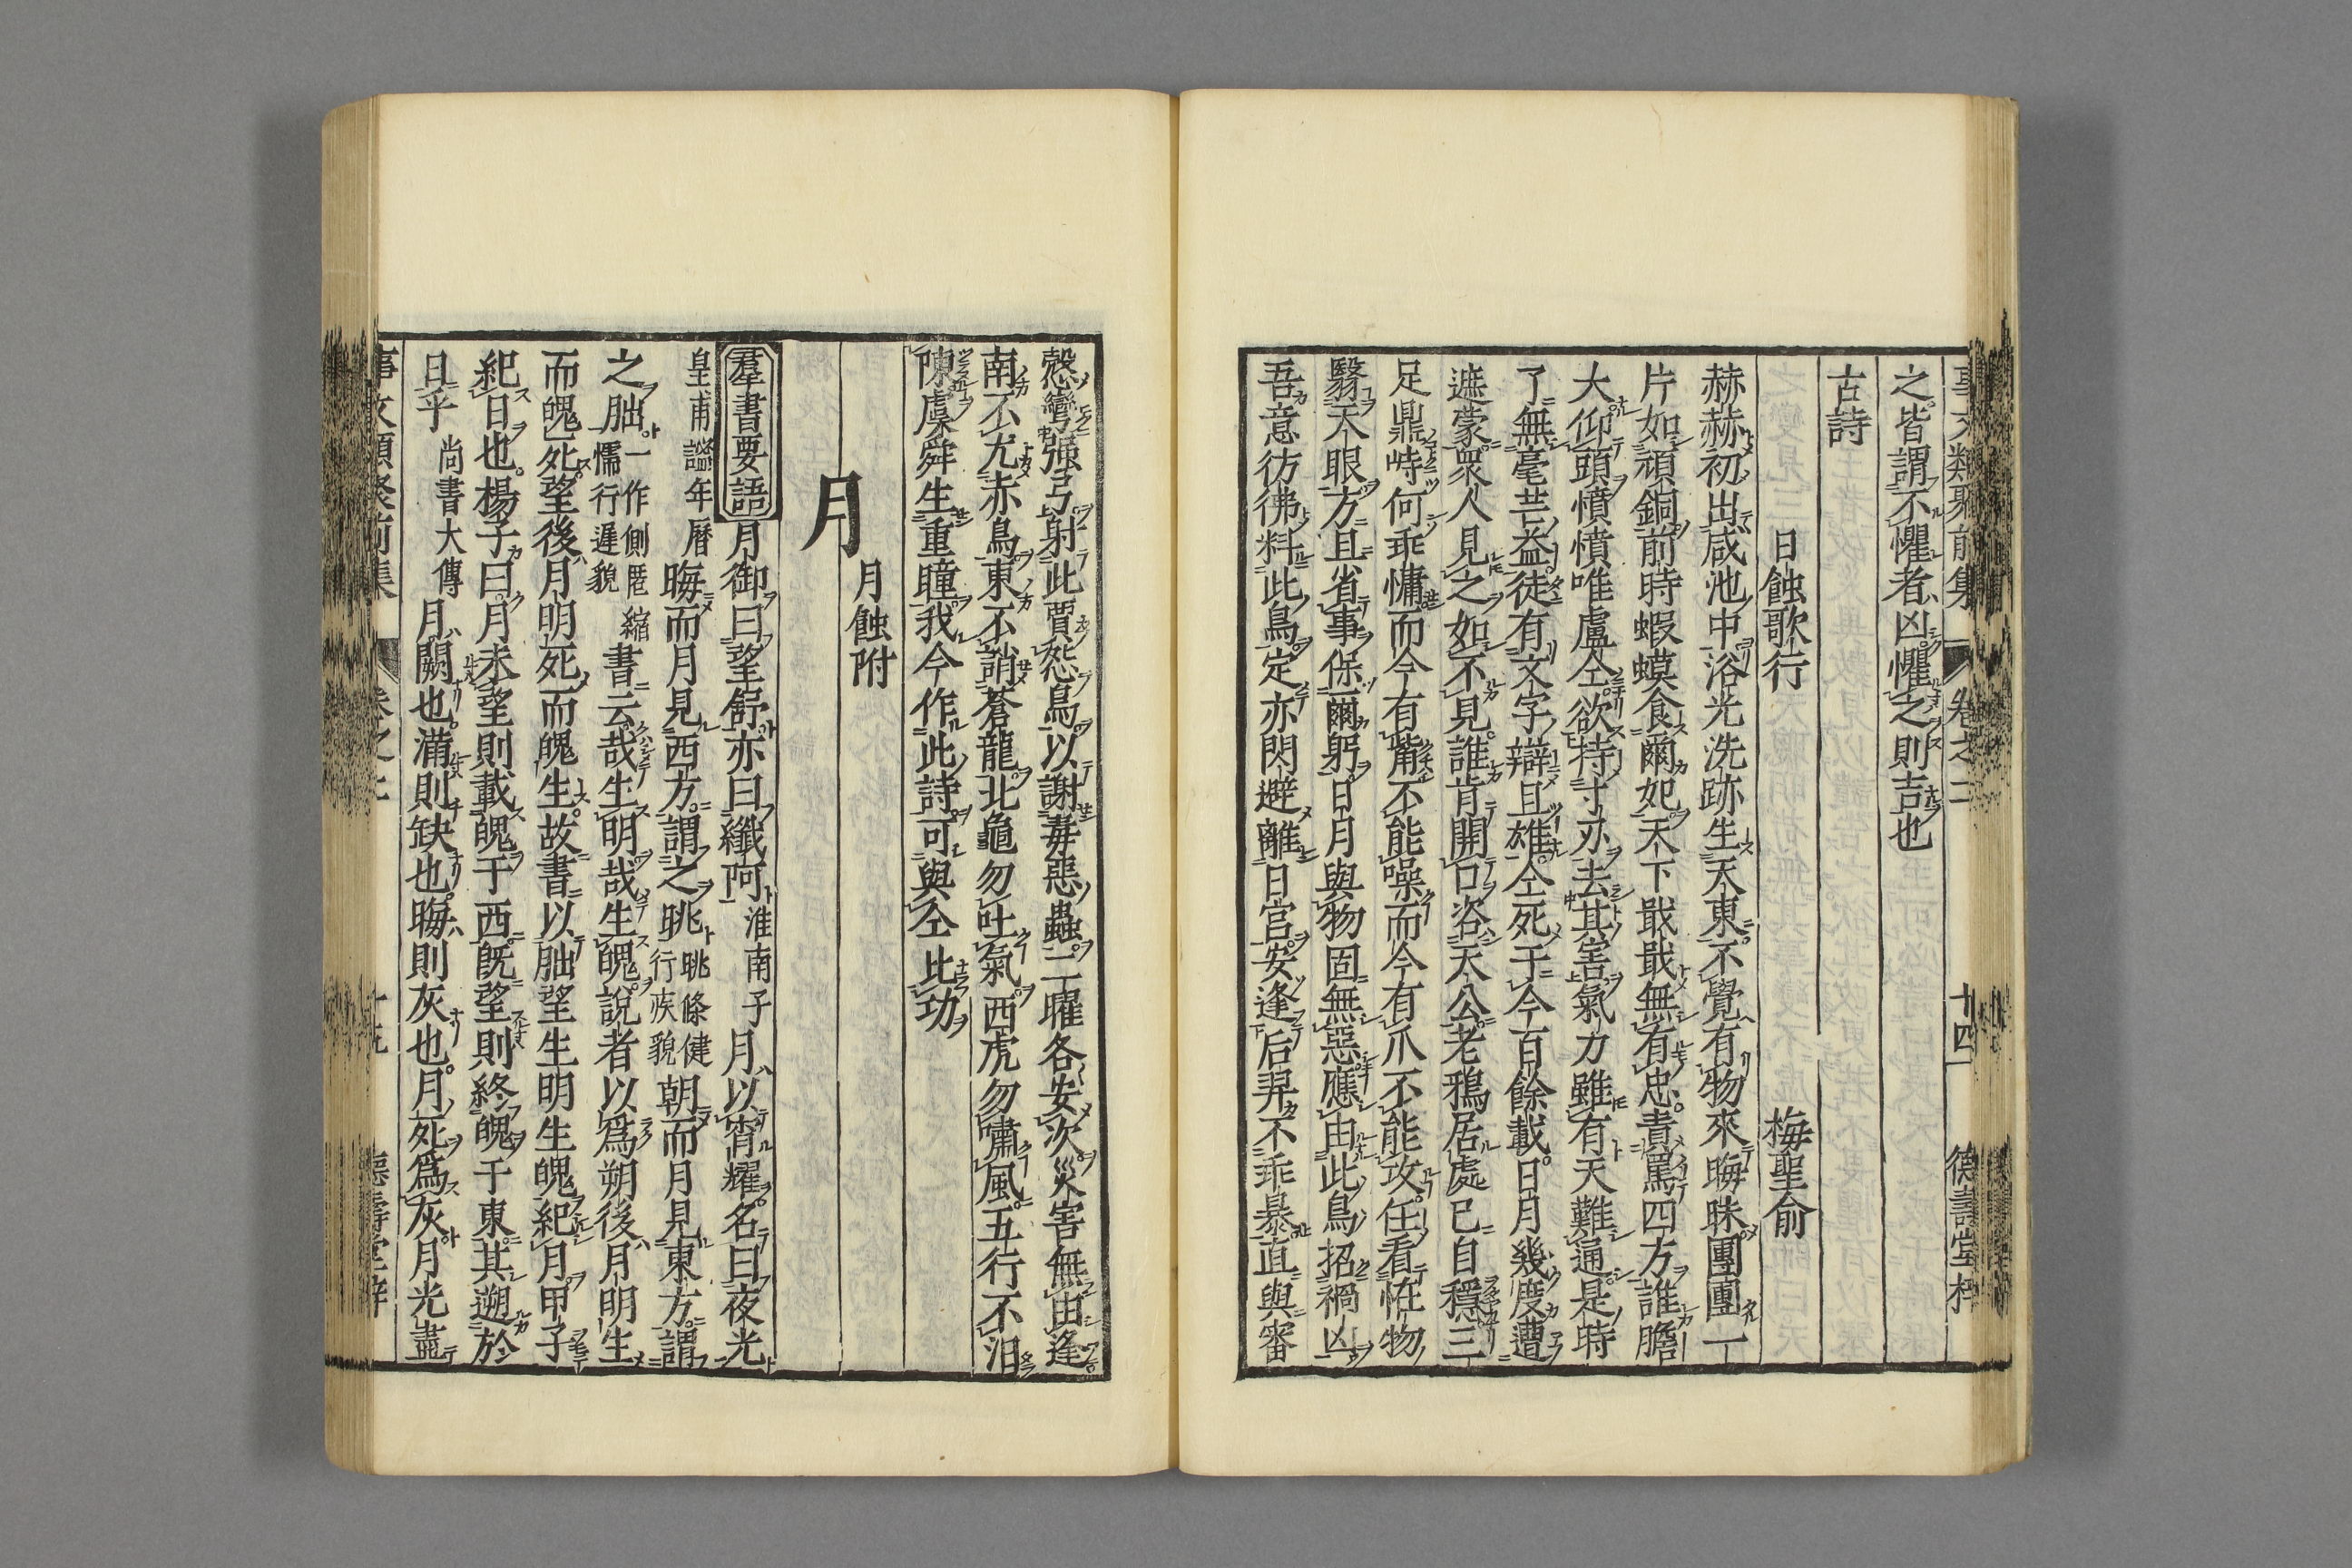 事文類聚前集 卷之二 十四 德壽堂梓
之皆謂不懼者凶懼之則吉也
古詩
日蝕歌行 梅聖俞
赫赫初出咸池中浴光洗跡生天東不覺有物來晦昧團團一
片如頑銅前時蝦蟆食爾妃天下戢戢無有忠責罵四方誰膽
大仰頭憤憤唯盧仝欲持寸刃去其害氣力雖有天難通是時
了無毫芒益徒有文字辯且雄仝死于今百餘載日月幾度遭
遮蒙衆人見之如不見誰肯開口咨天公老鴉居處已自穩三
足鼎峙何乖慵而今有觜不能噪而今有爪不能攻任看怪物
翳天眼方且省事保爾躬日月與物固無惡應由此鳥招禍凶
吾意彷彿料此鳥定亦閃避離日宫安逢后羿不乖暴直與審
慤彎强弓射此賈怨鳥以謝毒惡蟲二曜各安次災害無由逢
南不尤赤鳥東不誚蒼龍北龜勿吐氣西虎勿嘯風五行不汨
陳虞舜生重瞳我今作此詩可與仝比功
月蝕附
月
羣書要語 月御曰望舒亦曰纖阿 淮南子 月以宵耀名曰夜光
皇甫謐年曆 晦而月見西方謂之朓 朓條健行疾貌 朝而月見東方謂
之朏 一作側匿縮懦行遲貌 書云哉生明哉生魄說者以爲朔後月明生
而魄死望後月明死而魄生故書以朏望生明生魄紀月甲子
紀日也楊子曰月未望則載魄于西既望則終魄于東其遡於
日乎 尚書大傳 月闕也滿則缺也晦則灰也月死爲灰月光盡
事文類聚前集 卷之二 德壽堂梓